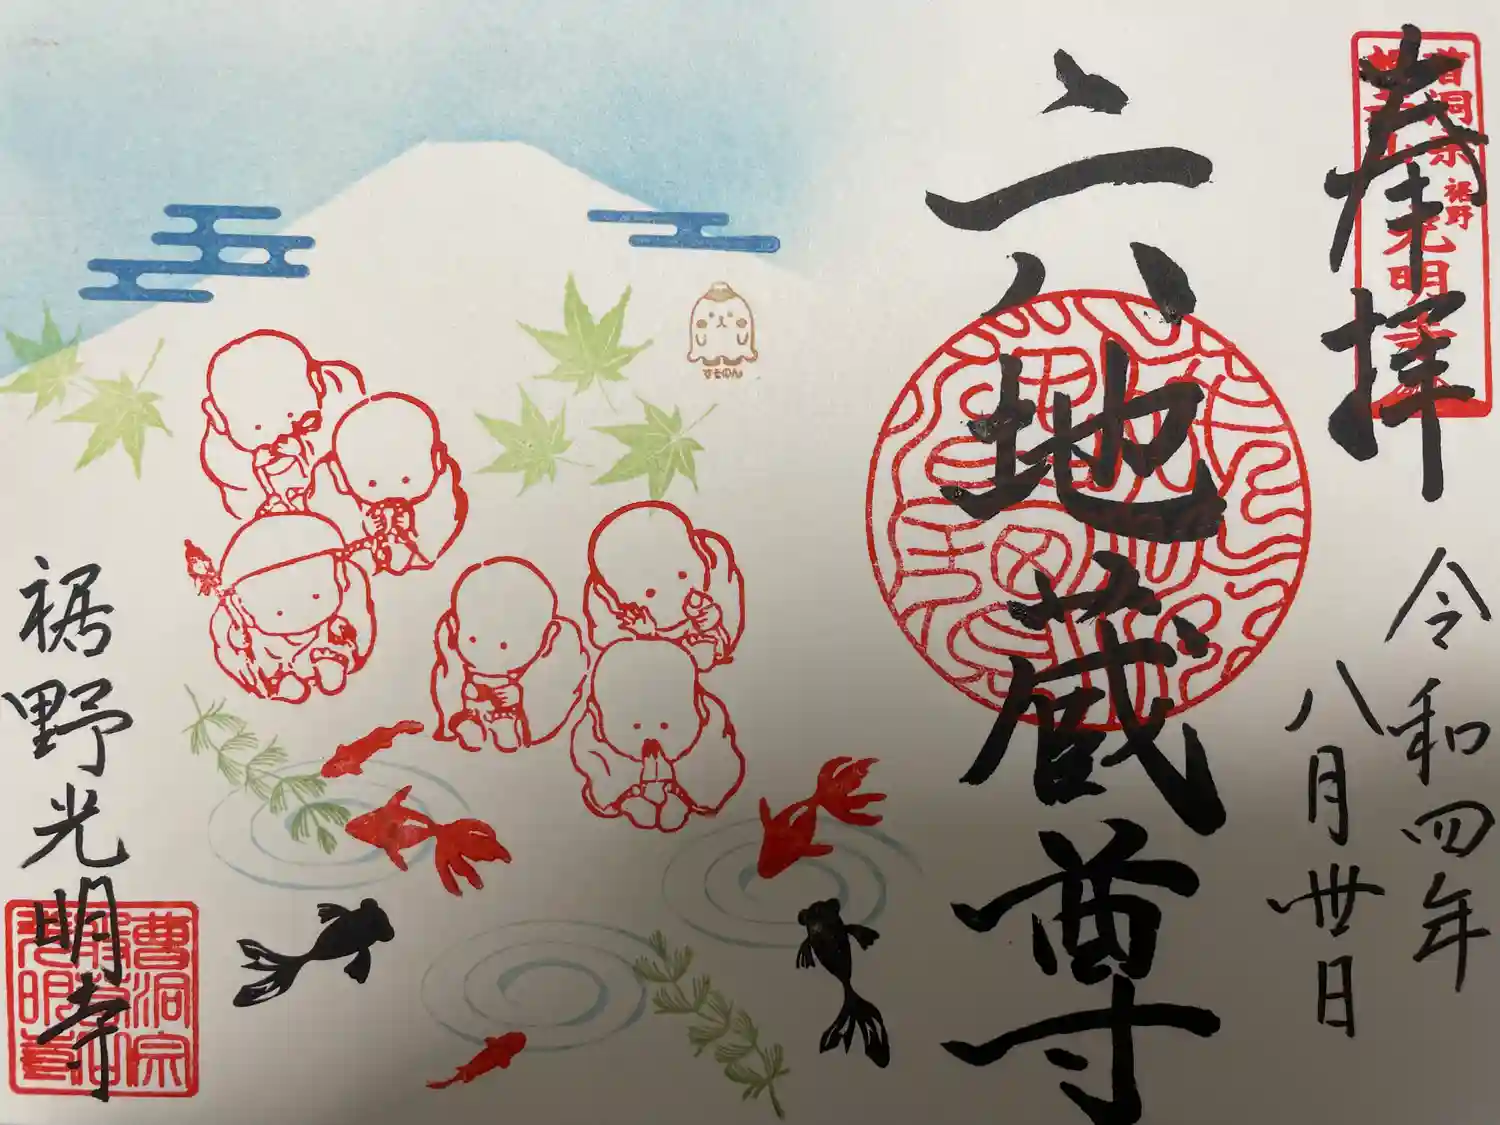 奉拝
曹洞宗
裾野
光明寺
令和四年
八月卅日
六地蔵尊
すそのん
裾野光明寺
曹洞宗
光明寺